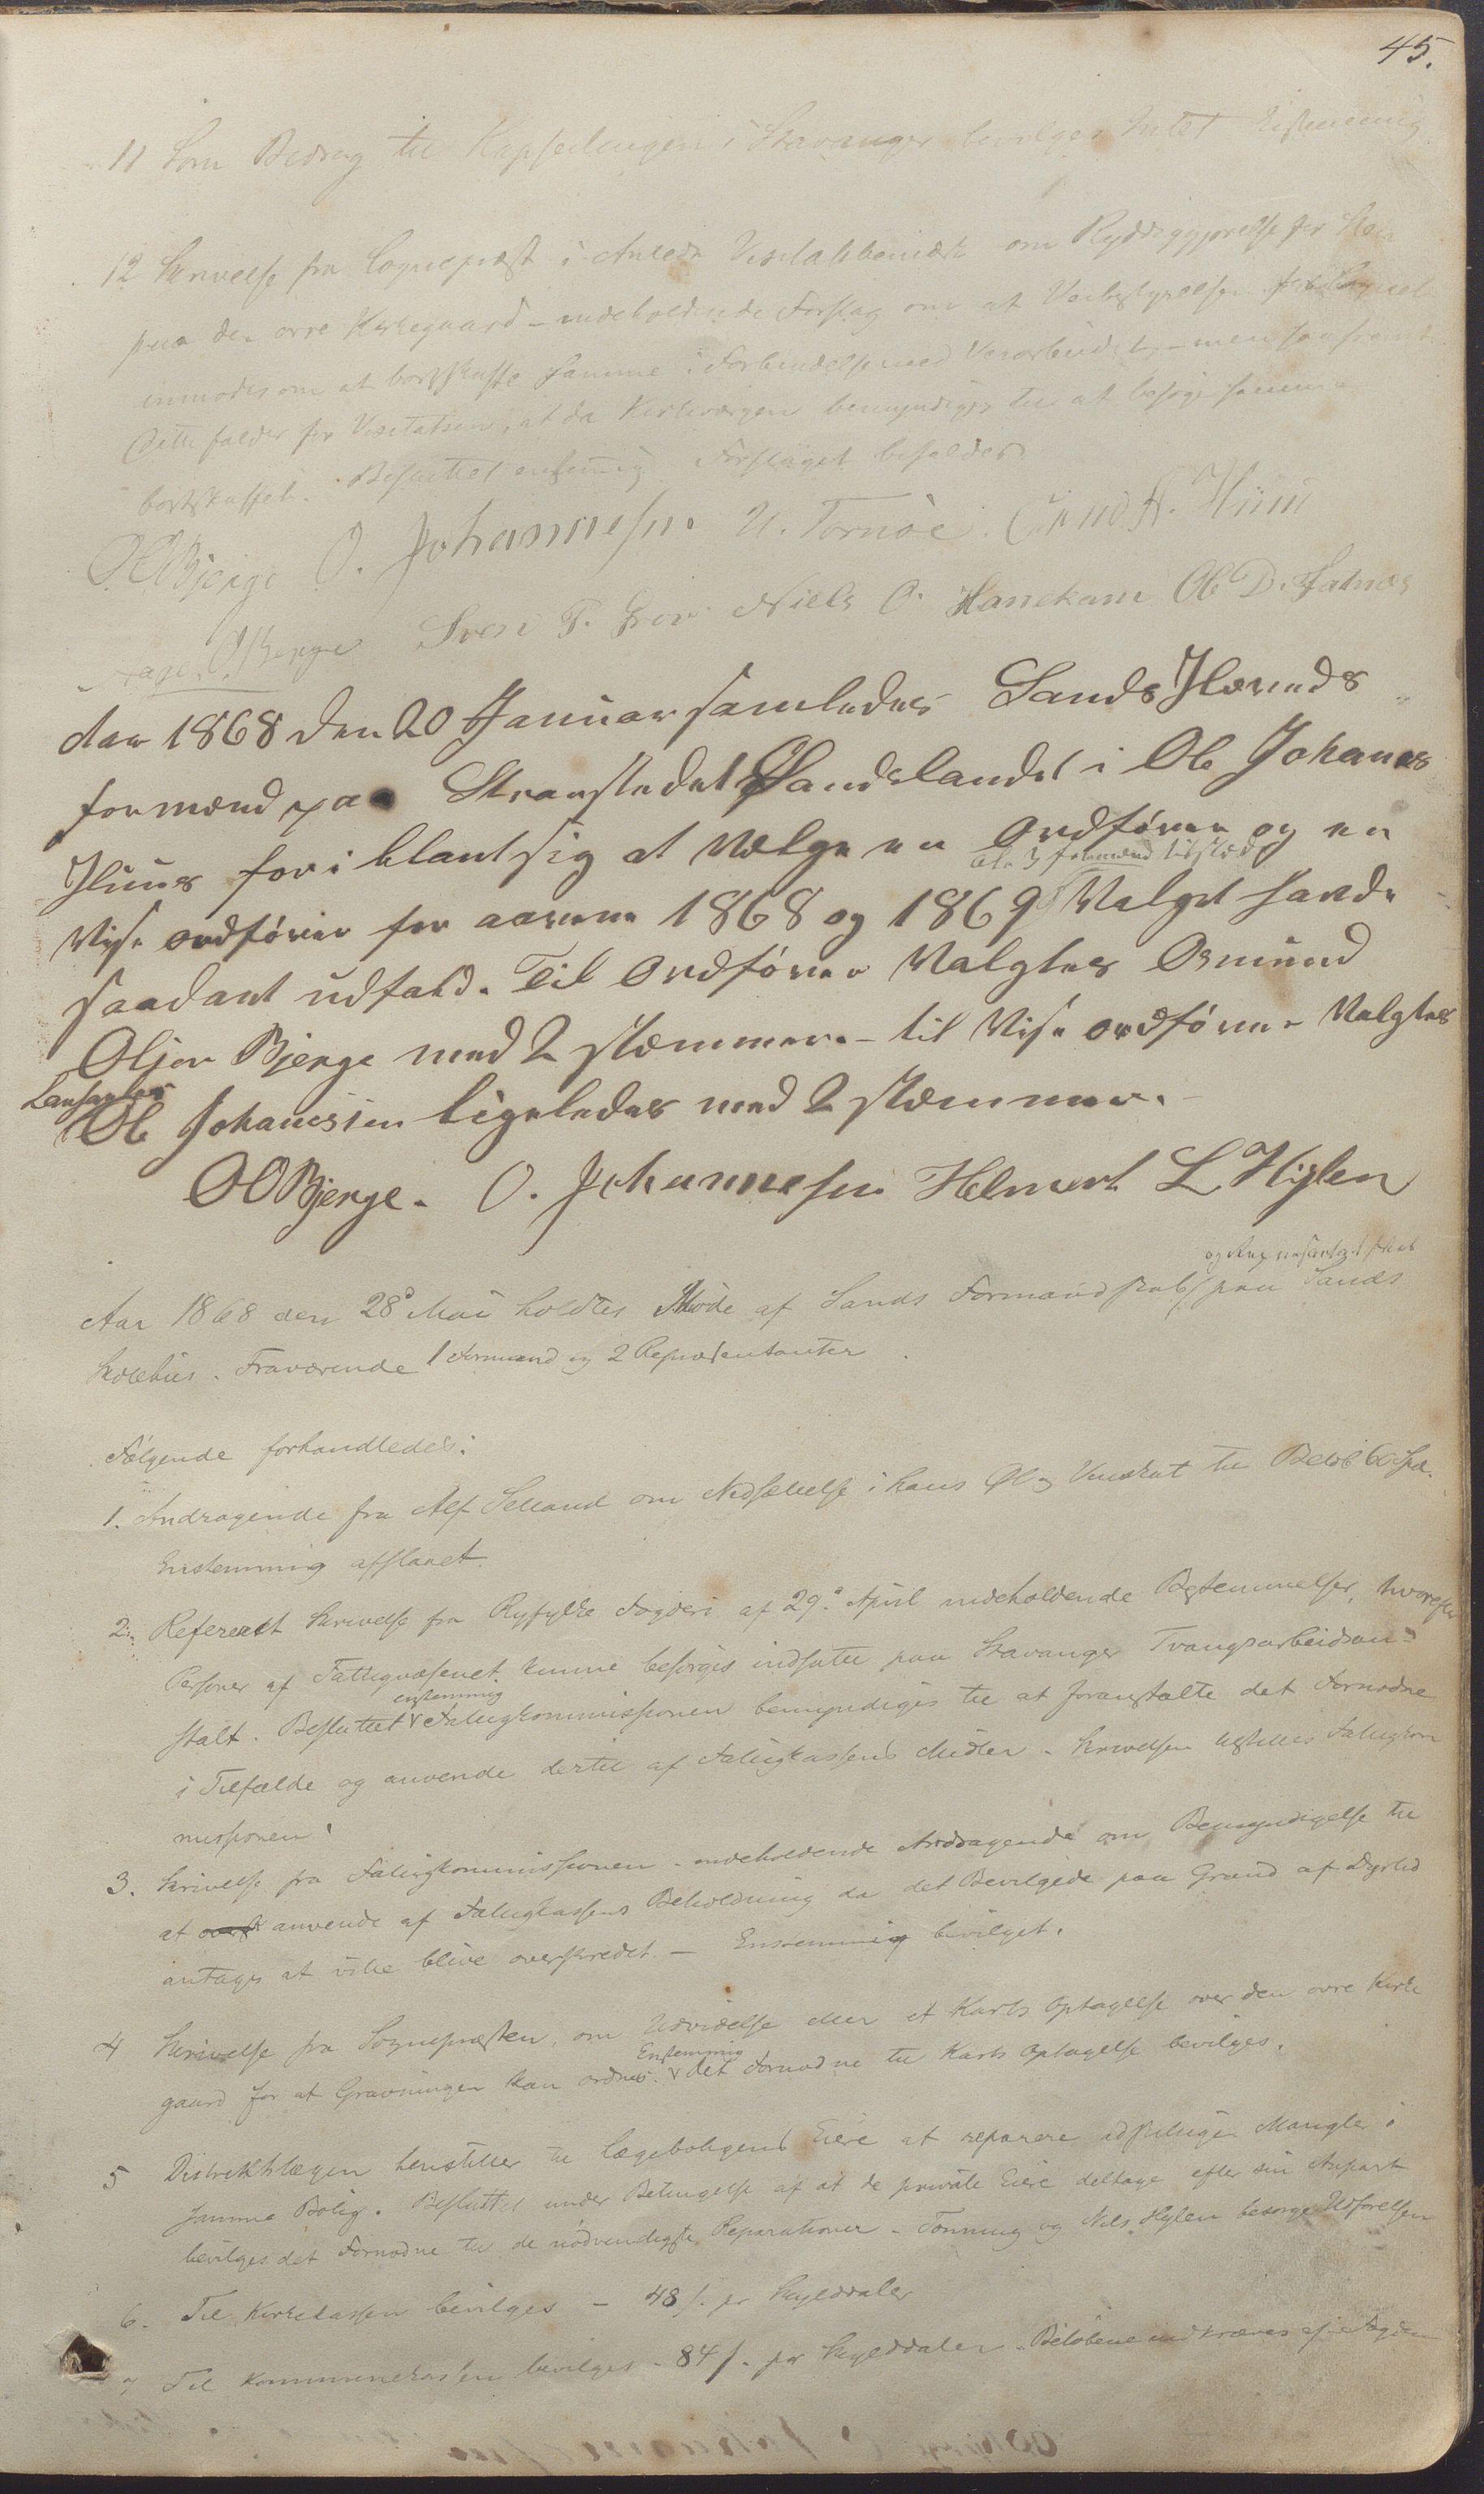 45.
11 Som Bidrag til Kapseilingen i Stavanger bevilges Intet Eenstemmig
12 Skrivelse fra Sognepræst i Anledn Visitatsbemærk om Ryddiggjørelse for Sten
paa den øvre Kirkegaard – indeholdende Forslag om at Veibestyrelsen
anmodes om at bortskaffe samme i Forbindelse med Veiarbeidet, – men saafremt
Dette falder før Visitatsen, at da Kirkeværgen bemyndiges til at besørge samme
bortskaffet. Besluttet enstemmig Forslaget
OOBjerge O. Johannesen U. Tornøe. Knud A. Hiim
Aage O Berge Sven T. Grov Niels O. Hanekam Ole D. Fatnes
Aar 1868 den 20 Januar samledes Sands Herreds
formænd paa Strandstedet Sandslandet i Ole Johanes
Huus for i blant sig at Vælge en Ordfører og en
alle 3 formænd tilstede
Vise ordfører for aarene 1868 og 1869 Valget havde
saadant udfald. Til Ordfører Valgtes Osmund
Olsen Bjerge med 2 stemmer. – til Vise ordfører Valgtes
Lensmand
Ole Johanesen ligeledes med 2 stemmer. –
OOBjerge. O. Johannesen Helmert L Hiylen
og Repræsentantskab
Aar 1868 den 28de Mai holdtes Møde af Sands Formandskab paa Sands
Skolehus. Fraværende 1 Formand og 2 Repræsentanter
Følgende forhandledes:
1. Andragende fra Alf Selland om Nedsættelse i hans Øl og Vinskat til Beløb 60 Spd.
Enstemmig afslaaet.
2. Refereret Skrivelse fra Ryfylke Fogderi af 29de April indeholdende Bestemmelser, hvorefter
Personer af Fattigvæsenet kunne besørges indsatte paa Stavanger Tvangsarbeidsan-
enstemmig
stalt. Besluttet Fattigkommissionen bemyndiges til at foranstalte det Fornødne
i Tilfælde og anvende dertil af Fattigkassens Midler. Skrivelsen tilstilles Fattigkom
missionen.
3. Skrivelse fra Fattigkommissionen – indeholdende Andragende om Bemyndigelse til
at anvende af Fattigkassens Beholdning da det Bevilgede paa Grund af Dyrtid
antages at ville blive overskredet – Enstemmig bevilget.
4 Skrivelse fra Sognepræsten om Udvidelse eller et Karts Optagelse over den øvre Kirke
Enstemmig
gaard for at Gravningen kan ordnes. det Fornødne til Karts Optagelse bevilges.
5 Distriktslægen henstiller til Lægeboligens Eiere at reparere adskillige Mangler i
samme Bolig. Besluttet under Betingelse af at de private Eiere deltage efter sin Anpart
bevilges det Fornødne til de nødvendigste Reparationer – Tonning og Nils Hylen besørge Udførelsen
6. Til Kirkekassen bevilges – 48 s. pr Skylddaler
7 Til Kommunekassen bevilges – 84 s. pr Skylddaler. Beløbene indkræves af Fogden